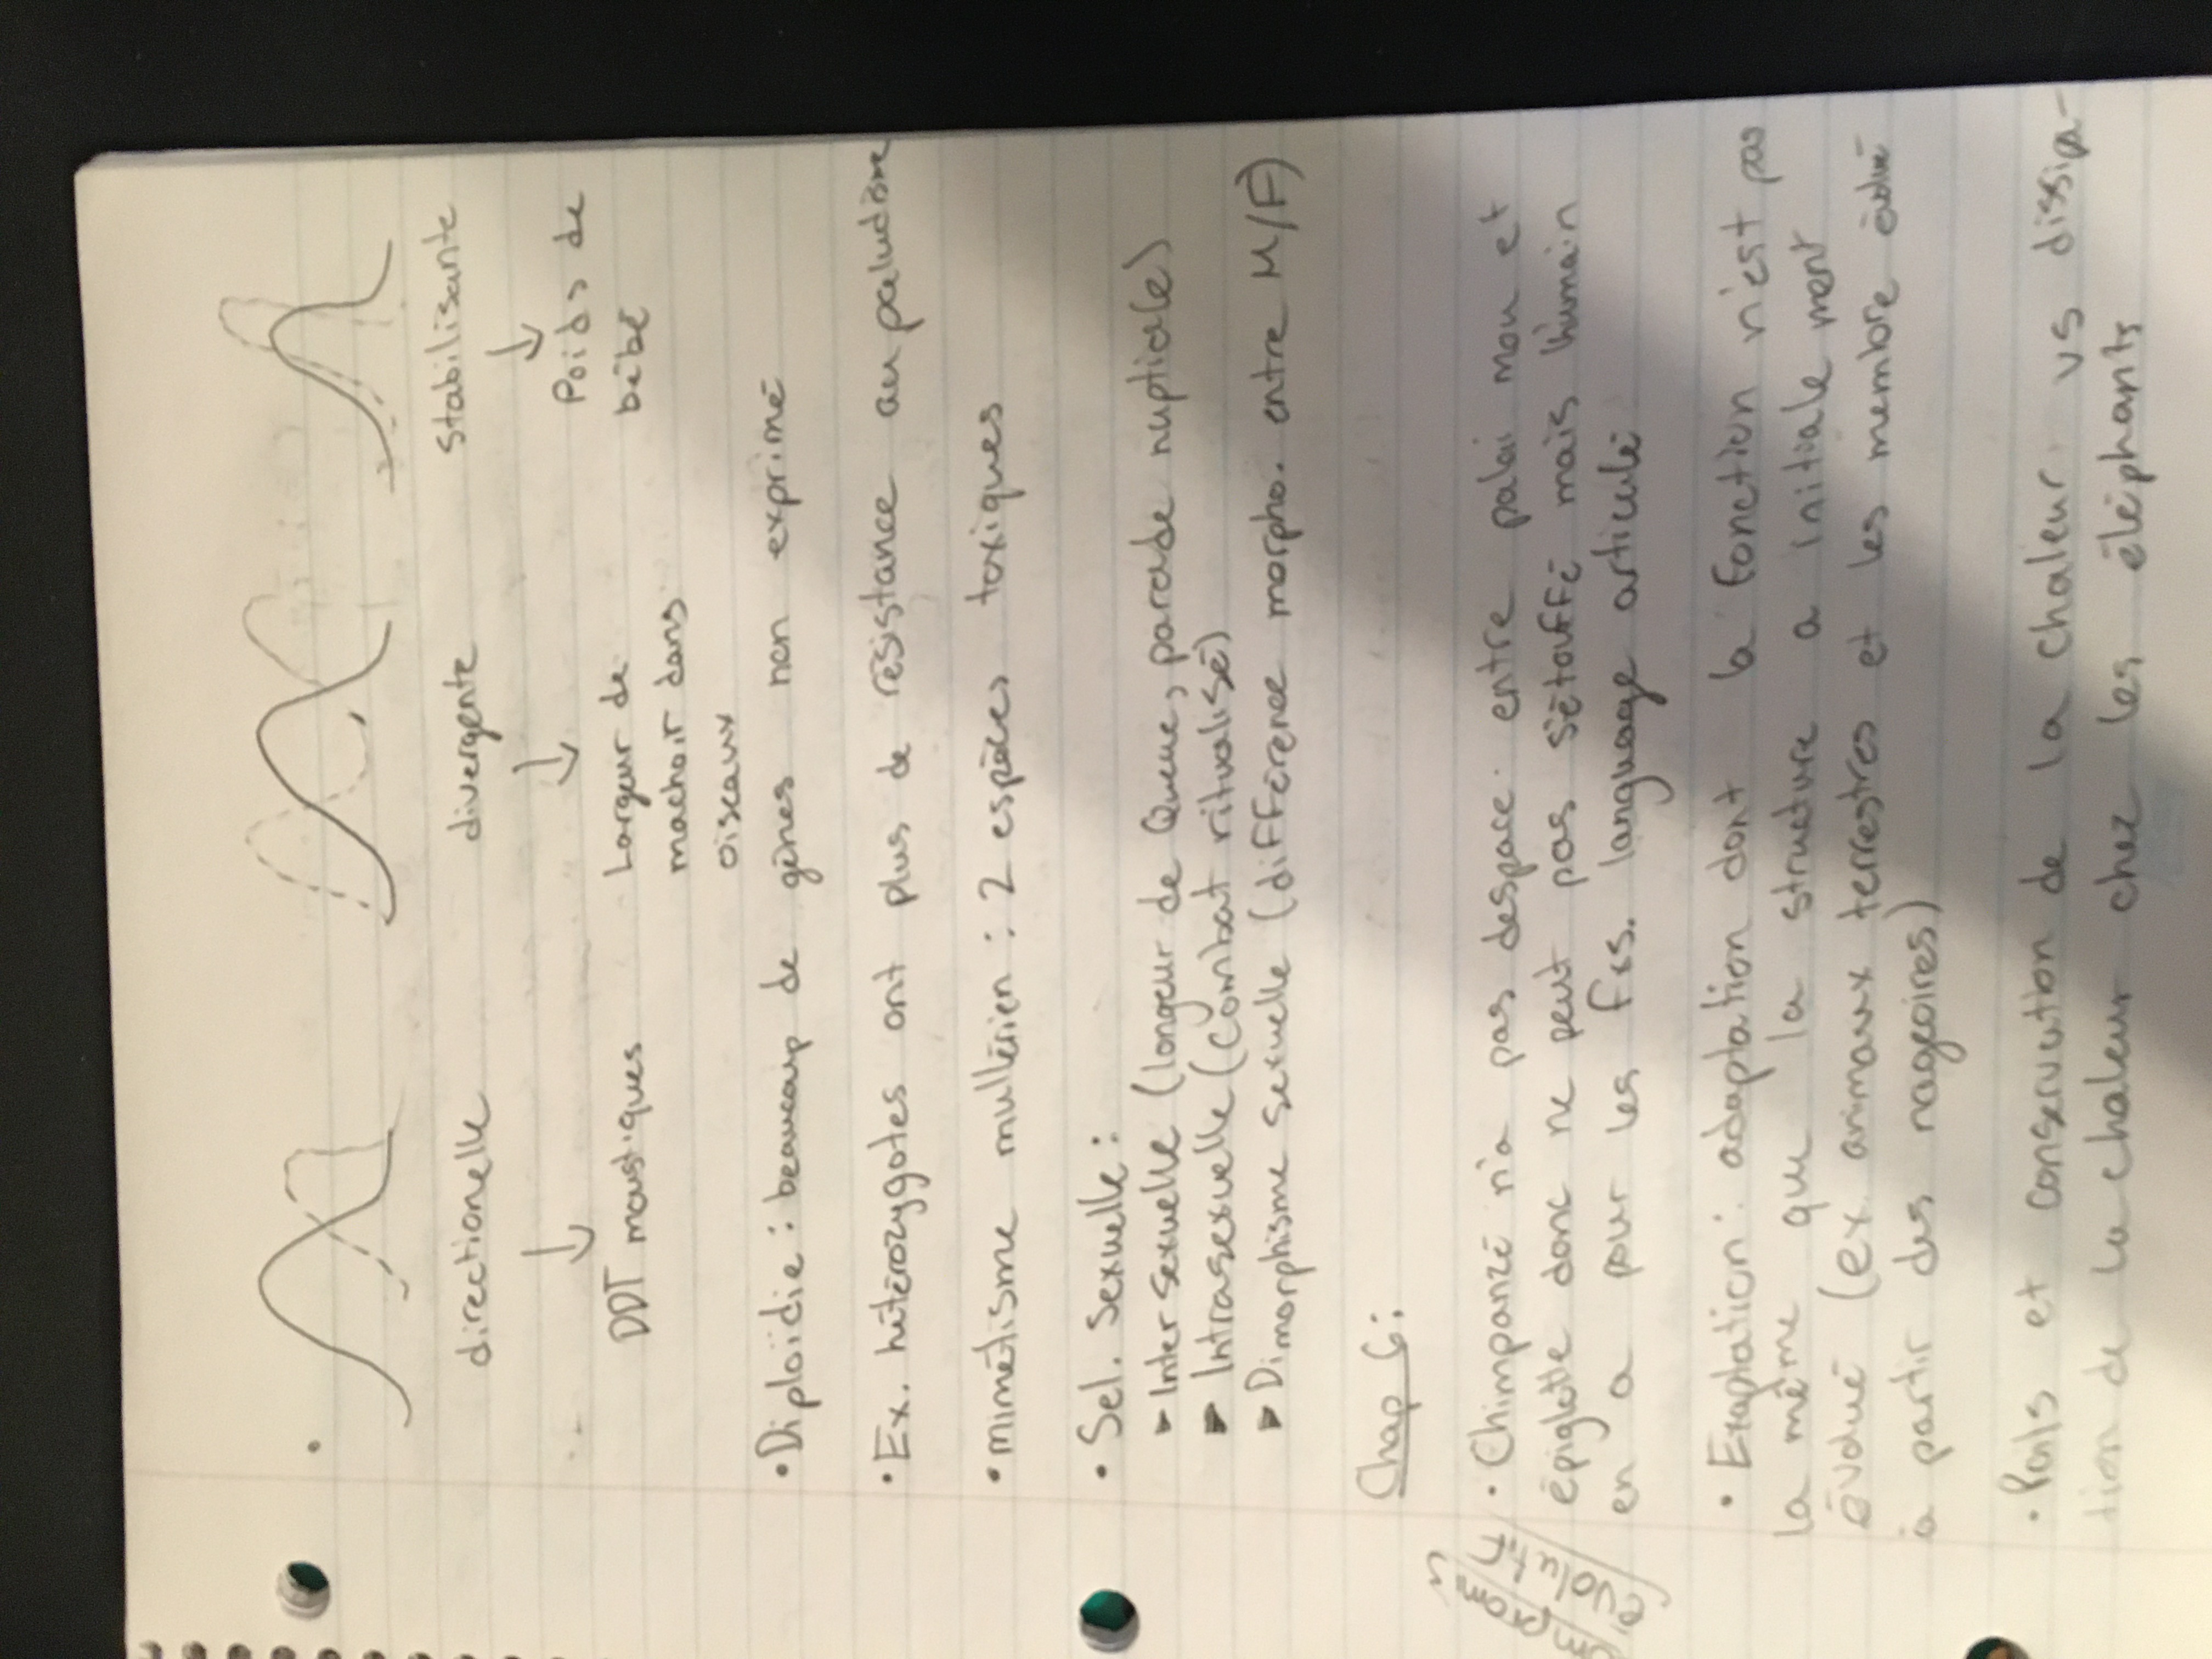 directionelle divergente stabilisante
↓ ↓ ↓
DDT moustiques Largeur de Poids de
machoir dans bébé
oiseaux
• Diploïdie : beaucoup de gènes non exprimé
• Ex. hétérozygotes ont plus de résistance au paludisme
• mimétisme mullérien : 2 espèces toxiques
• Sel. Sexuelle :
► Intersexuelle (longeur de Queue, parade nuptiale)
► Intrasexuelle (combat ritualisé)
► Dimorphisme sexuelle (différence morpho. entre M/F)
Chap 6 :
évolutif
• Chimpanzé n'a pas d'espace entre palai mou et
épiglotte donc ne peut pas s'étouffé mais humain
en a pour les fxs. language articulé
• Exaptation : adaptation dont la fonction n'est pas
la même que la structure a initialement
évolué (ex. animaux terrestres et les membre évolué
à partir des nageoires)
• Poils et conservation de la chaleur vs dissipa-
tion de la chaleur chez les éléphants